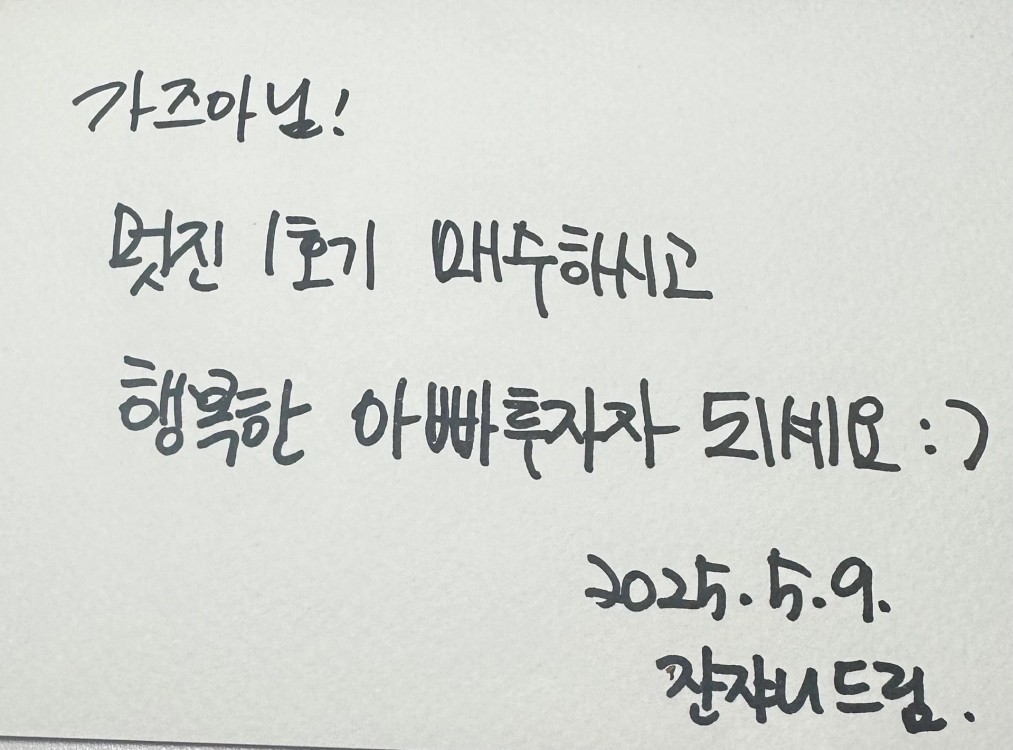 가즈아님!
멋진 1호기 매수하시고
행복한 아빠투자자 되세요 :)
2025. 5. 9.
쟌쟈니드림.